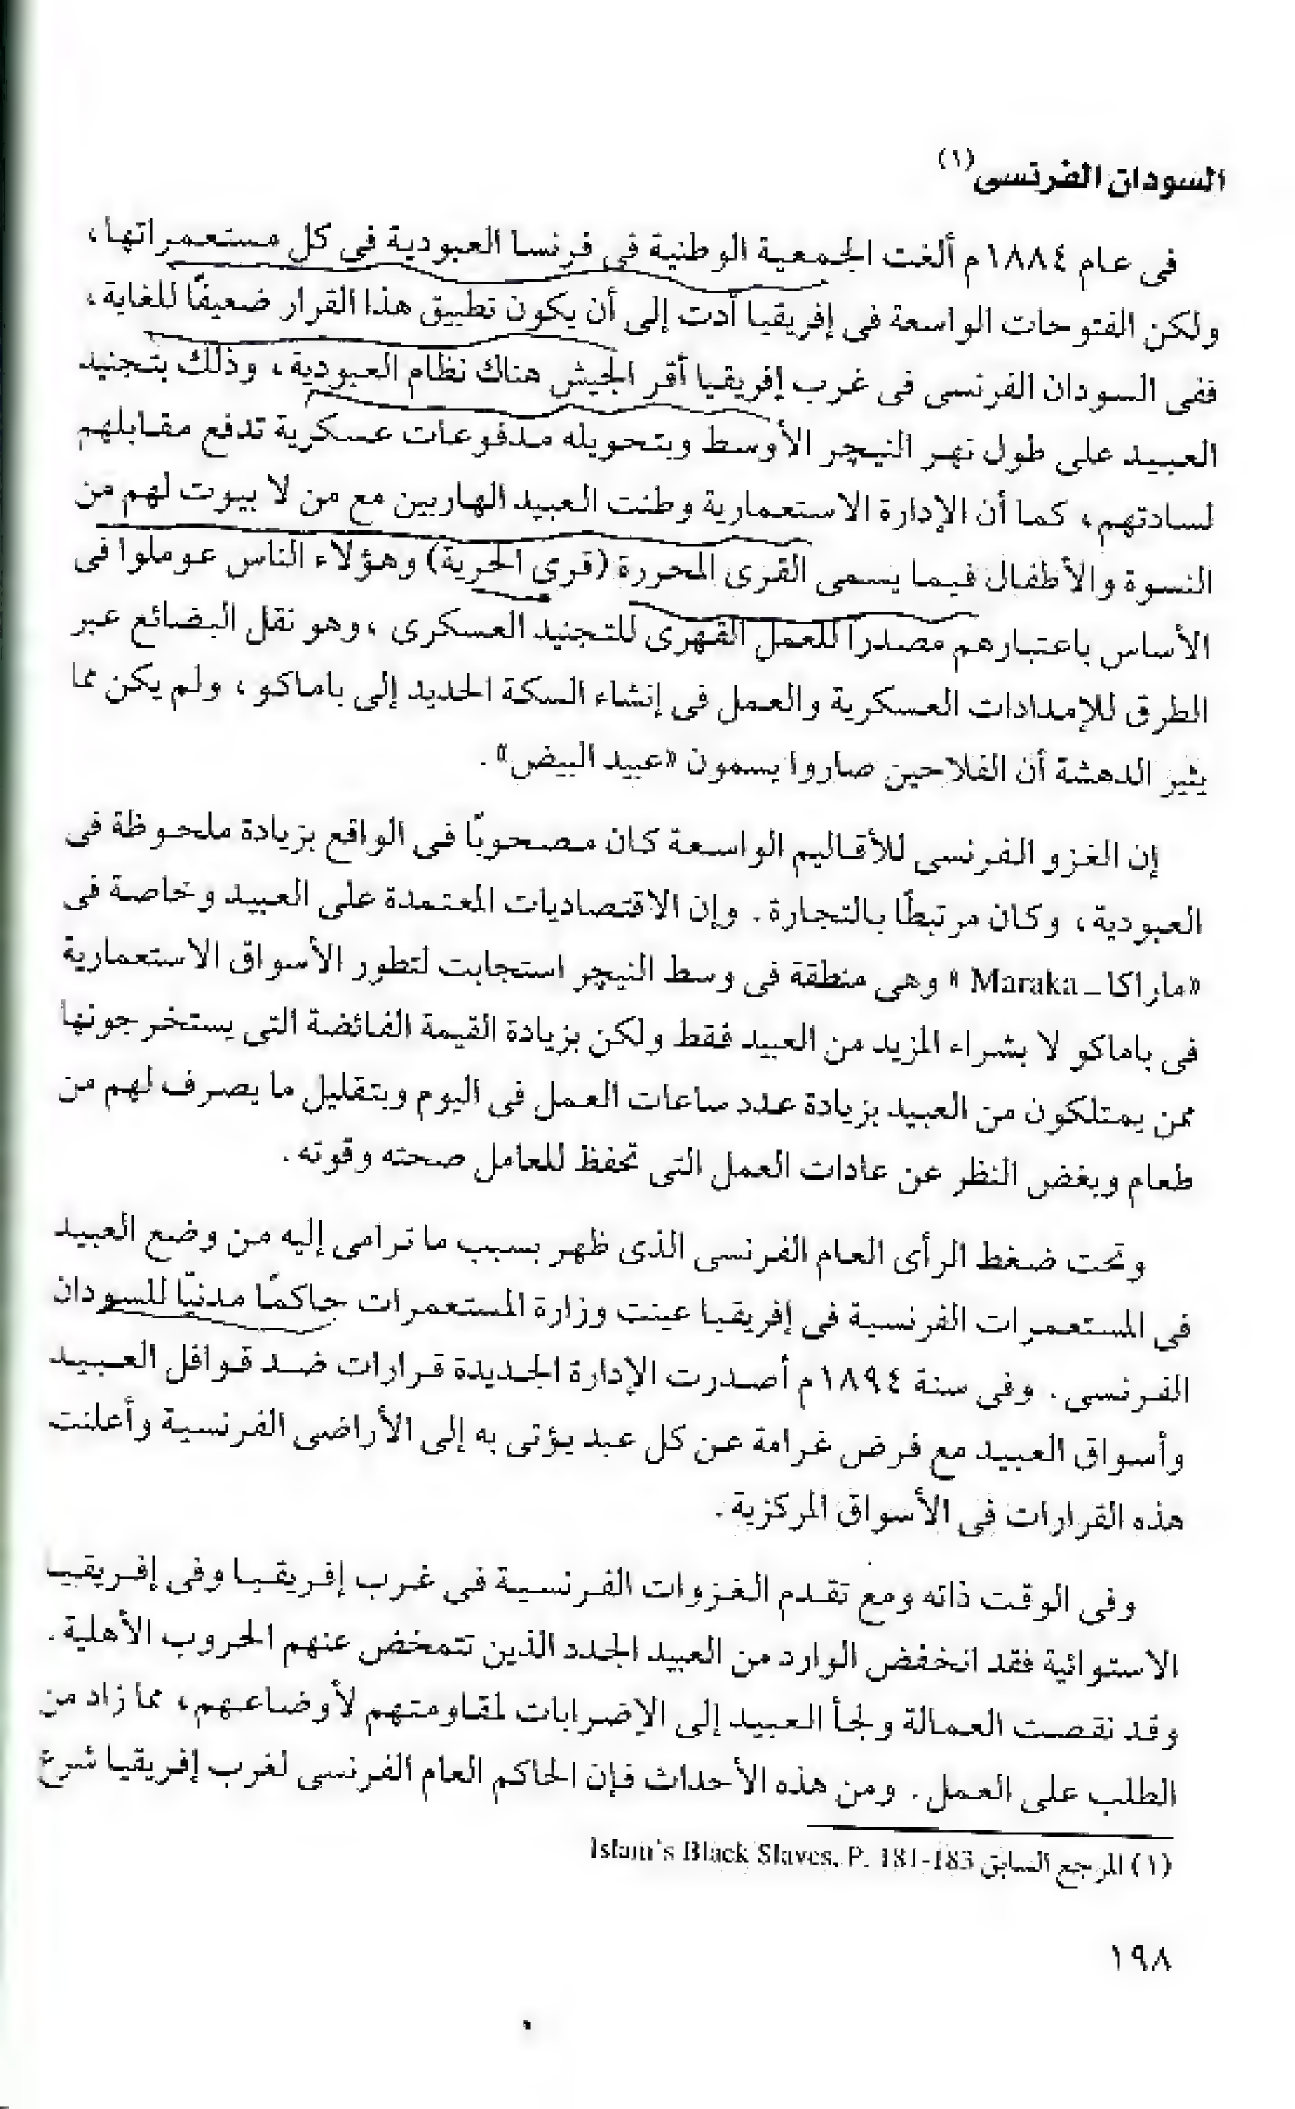 السودان الفرنسى(١)
فى عام ١٨٨٤م ألغت الجمعية الوطنية فى فرنسا العبودية فى كل مستعمراتها،
ولكن الفتوحات الواسعة فى إفريقيا أدت إلى أن يكون تطبيق هذا القرار ضعيفًا للغاية،
ففى السودان الفرنسى فى غرب إفريقيا أقر الجيش هناك نظام العبودية، وذلك بتجنيد
العبيد على طول نهر النيچر الأوسط وبتحويله مدفوعات عسكرية تدفع مقابلهم
لسادتهم، كما أن الإدارة الاستعمارية وطنت العبيد الهاربين مع من لا بيوت لهم من
النسوة والأطفال فيما يسمى القرى المحررة (قرى الحرية) وهؤلاء الناس عوملوا فى
الأساس باعتبارهم مصدرًا للعمل القهرى للتجنيد العسكرى، وهو نقل البضائع عبر
الطرق للإمدادات العسكرية والعمل فى إنشاء السكة الحديد إلى باماكو، ولم يكن مما
يثير الدهشة أن الفلاحين صاروا يسمون «عبيد البيض».
إن الغزو الفرنسى للأقاليم الواسعة كان مصحوبًا فى الواقع بزيادة ملحوظة فى
العبودية، وكان مرتبطًا بالتجارة. وإن الاقتصاديات المعتمدة على العبيد وخاصة فى
«ماراكا ـ Maraka» وهى منطقة فى وسط النيچر استجابت لتطور الأسواق الاستعمارية
فى باماكو لا بشراء المزيد من العبيد فقط ولكن بزيادة القيمة الفائضة التى يستخرجونها
ممن يمتلكون من العبيد بزيادة عدد ساعات العمل فى اليوم وبتقليل ما يصرف لهم من
طعام وبغض النظر عن عادات العمل التى تحفظ للعامل صحته وقوته.
وتحت ضغط الرأى العام الفرنسى الذى ظهر بسبب ما ترامى إليه من وضع العبيد
فى المستعمرات الفرنسية فى إفريقيا عينت وزارة المستعمرات حاكمًا مدنيّا للسودان
الفرنسى. وفى سنة ١٨٩٤م أصدرت الإدارة الجديدة قرارات ضد قوافل العبيد
وأسواق العبيد مع فرض غرامة عن كل عبد يؤتى به إلى الأراضى الفرنسية وأعلنت
هذه القرارات فى الأسواق المركزية.
وفى الوقت ذاته ومع تقدم الغزوات الفرنسية فى غرب إفريقيا وفى إفريقيا
الاستوائية فقد انخفض الوارد من العبيد الجدد الذين تتمخض عنهم الحروب الأهلية.
وقد نقصت العمالة ولجأ العبيد إلى الإضرابات لمقاومتهم لأوضاعهم، مما زاد من
الطلب على العمل. ومن هذه الأحداث فإن الحاكم العام الفرنسى لغرب إفريقيا شرع
(١) المرجع السابق Islam's Black Slaves, P. 181-183
١٩٨